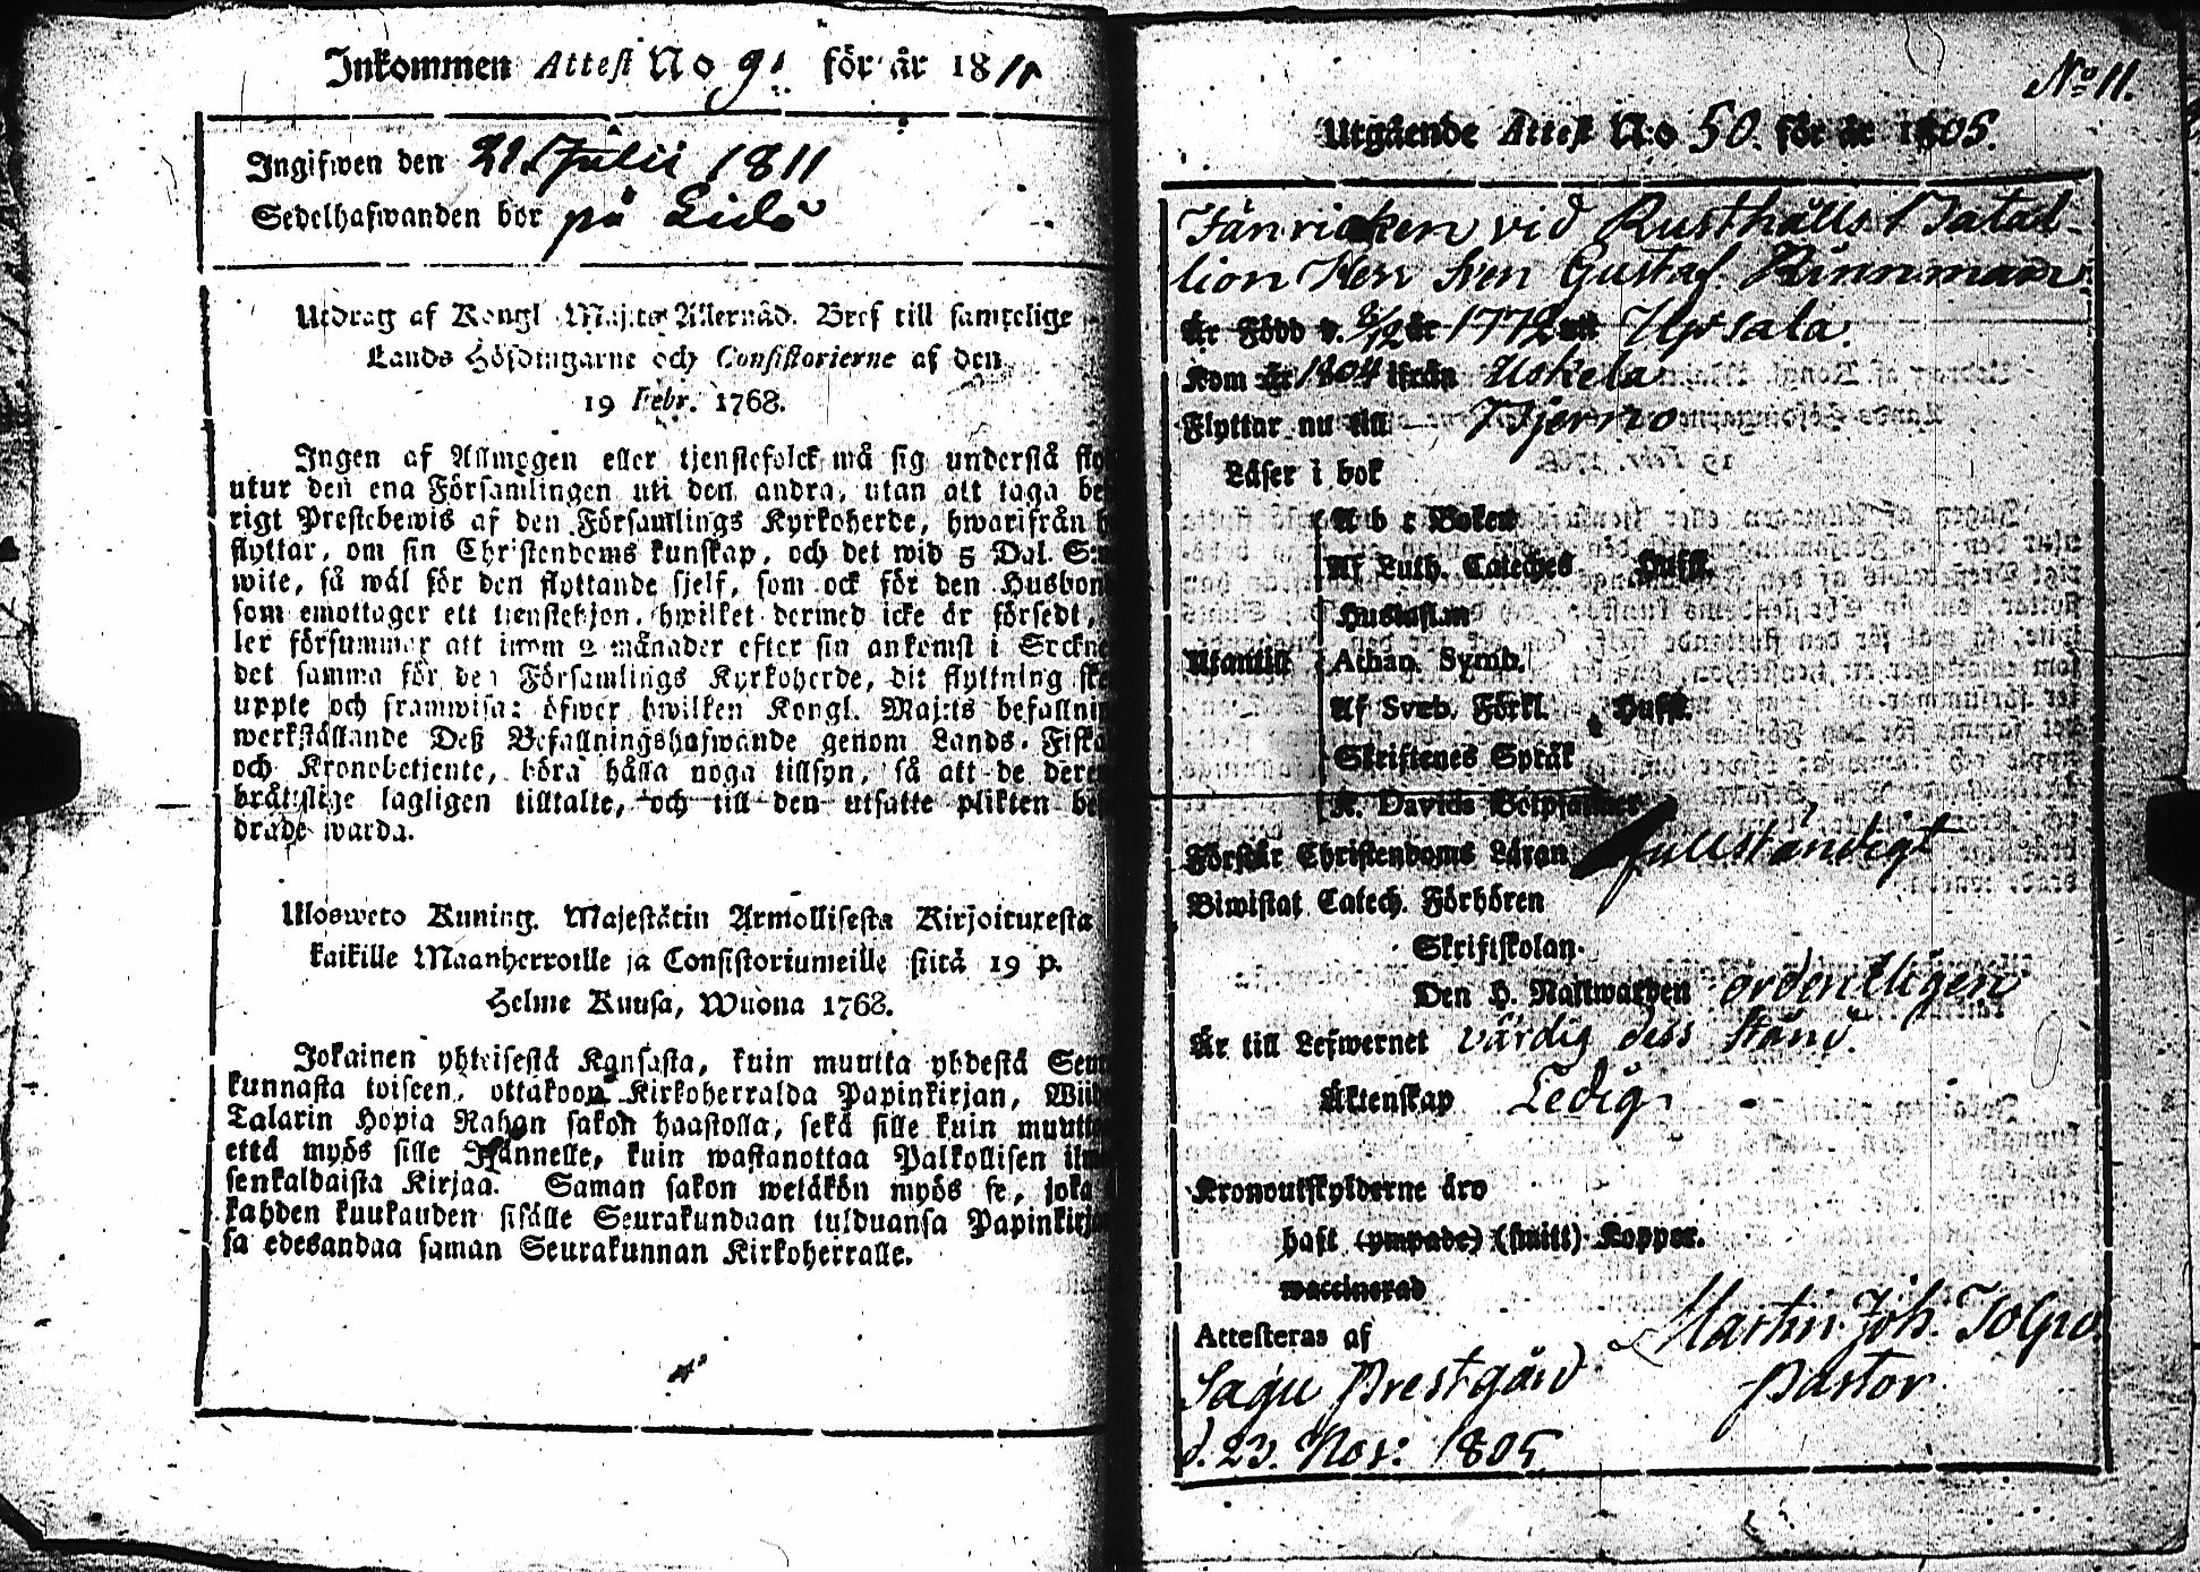 Inkommen Attest No 9. för år 1811
Ingifwen den 21 Julii 1811
Sedelhafwanden bor på Lidö
Utdrag af Kongl. Maj:ts Allernåd. Bref till samtelige
Lands Höfdingarne och Consistorierne af den
19 Febr. 1768.
Ingen af Allmogen eller tjenstefolck må sig understå fly
utur den ena Församlingen uti den andra, utan att taga be
rigt Prestebewis af den Församlings Kyrkoherde, hwarifrån h
flyttar, om sin Christendoms kunskap, och det wid 5 Dal. S:m
wite, så wäl för den flyttande sjelf, som ock för den Husbon
som emottager ett tienstehjon, hwilket dermed icke är försedt,
ler försummar att inom 2 månader efter sin ankomst i Sockne
det samma för den Församlings Kyrkoherde, dit flyttning ske
uppte och framwisa: öfwer hwilken Kongl. Maj:ts befallnin
werkställande Deß Befallningshafwande genom Lands-Fiska
och Kronobetjente, böra hålla noga tillsyn, så att de dere
bråtslige lagligen tilltalte, och till den utsatte plikten be
drade warda.
Ulosweto Kuning. Majestätin Armollisesta Kirjoituxesta
kaikille Maanherroille ja Consistoriumeille siitä 19 p.
Helme Kuusa, Wuona 1768.
Jokainen yhteisestä Kansasta, kuin muutta yhdestä Seur
kunnasta toiseen, ottakoon Kirkoherralda Papinkirjan, Wiid
Talarin Hopia Rahan sakon haastolla, sekä sille kuin muutta
että myös sille Isännelle, kuin wastanottaa Palkollisen ilm
senkaldaista Kirjaa. Saman sakon wetäkön myös se, joka
kahden kuukauden sisälle Seurakundaan tulduansa Papinkirja
sa edesandaa saman Seurakunnan Kirkoherralle.
No 11.
Utgående Attest N:o 50. för år 1805.
Fänricken vid Rusthålls Batal-
lion Herr Sven Gustaf Rinnman
Är Född d. 8/12 år 1772 uti Upsala.
Kom år 1804 ifrån Uskela
Flyttar nu till Bjerno
Läser i bok
A b c Boken
Af Luth. Cateches Hufst.
Hustaflan
Utantill Athan. Symb.
Af Sveb. Förkl. Hufst.
Skriftenes Språk
K. Davids Botpsalmer
Förstår Christendoms Läran fullständigt
Biwistat Catech. Förhören
Skriftskolan
Den H. Nattwarden ordentligen
Är till Lefwernet värdig dess stånd.
Äktenskap Ledig
Kronoutskylderne äro
haft (ympade) (smitt) Koppor.
waccinerad
Attesteras af
Martin Joh. Tolpo
Sagu Prestgård Pastor
d. 23. Nov: 1805.